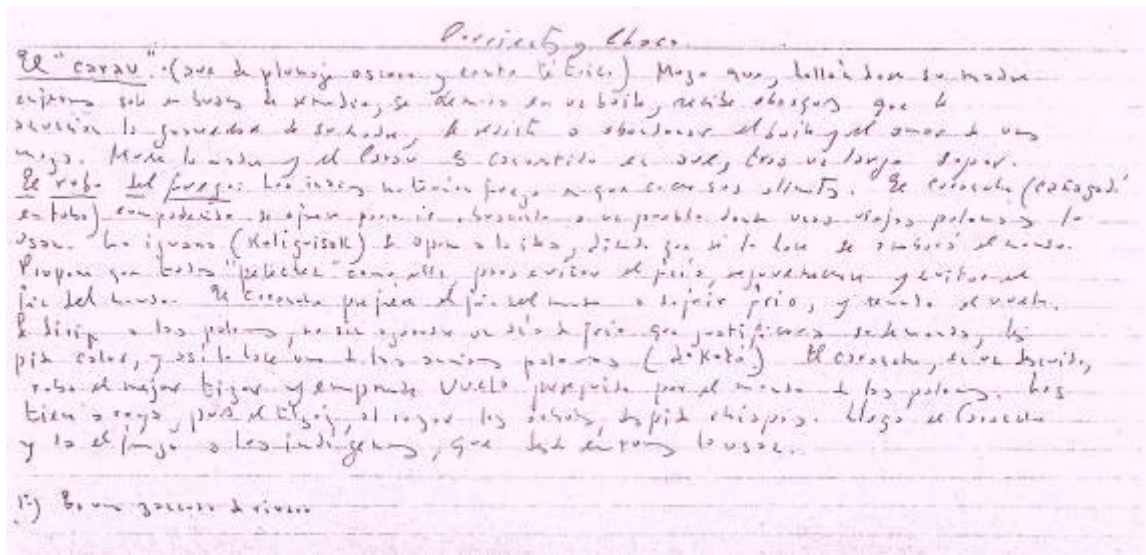 Corrientes y Chaco
El "carau". (ave de plumaje oscuro y canto tétrico) Mozo que, hallándose su madre
enferma sale en busca de remedio, se demora en un baile, recibe que le
la gravedad de su madre, se resiste a abandonar el baile y el amor de una
moza. Muere la madre y el Carau es convertido en ave, tras un largo
El robo del fuego: Los indios no tenían fuego en que cocer sus alimentos. El carancho (
en toba) compadecido se ofrece para ir a buscarlo a un pueblo donde unas viejas palomas lo
usan. La iguana (Kaliguisak) se opone a la idea, diciendo que si lo hace se el mundo.
Propone que todos "pelechen" como ella, para evitar el frío, rejuvenecerse y evitar el
fin del mundo. El Carancho prefiere el fin del mundo a sufrir frío, y remonta el vuelo.
Se dirige a las palomas, no sin aguardar un día de frío que justificara su demanda, les
pide calor, y así lo hace una de las ancianas palomas (dokoto) El carancho, en un descuido,
roba el mejor tizón y emprende vuelo perseguido por el marido de las palomas. Los
tiene a raya, pues el tizón, al rozar los árboles, despide chispas. Llega el Carancho
y da el fuego a los indígenas, que desde entonces lo usan.
1) Es una de